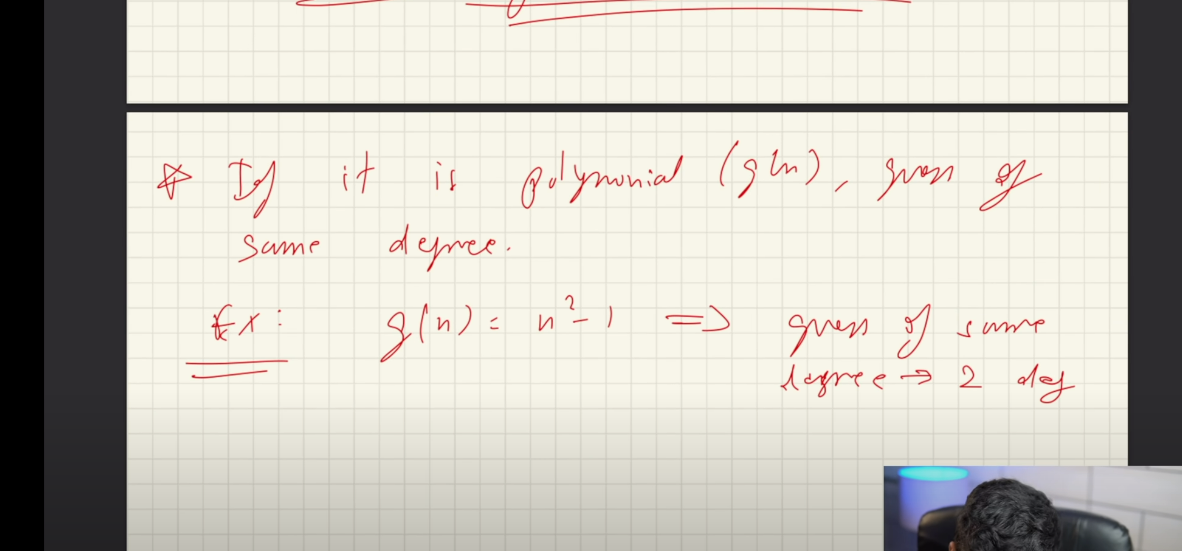 * If it is polynomial (g(n), guess of
same degree.
Ex: g(n) = n²-1 => guess of same
degree → 2 deg